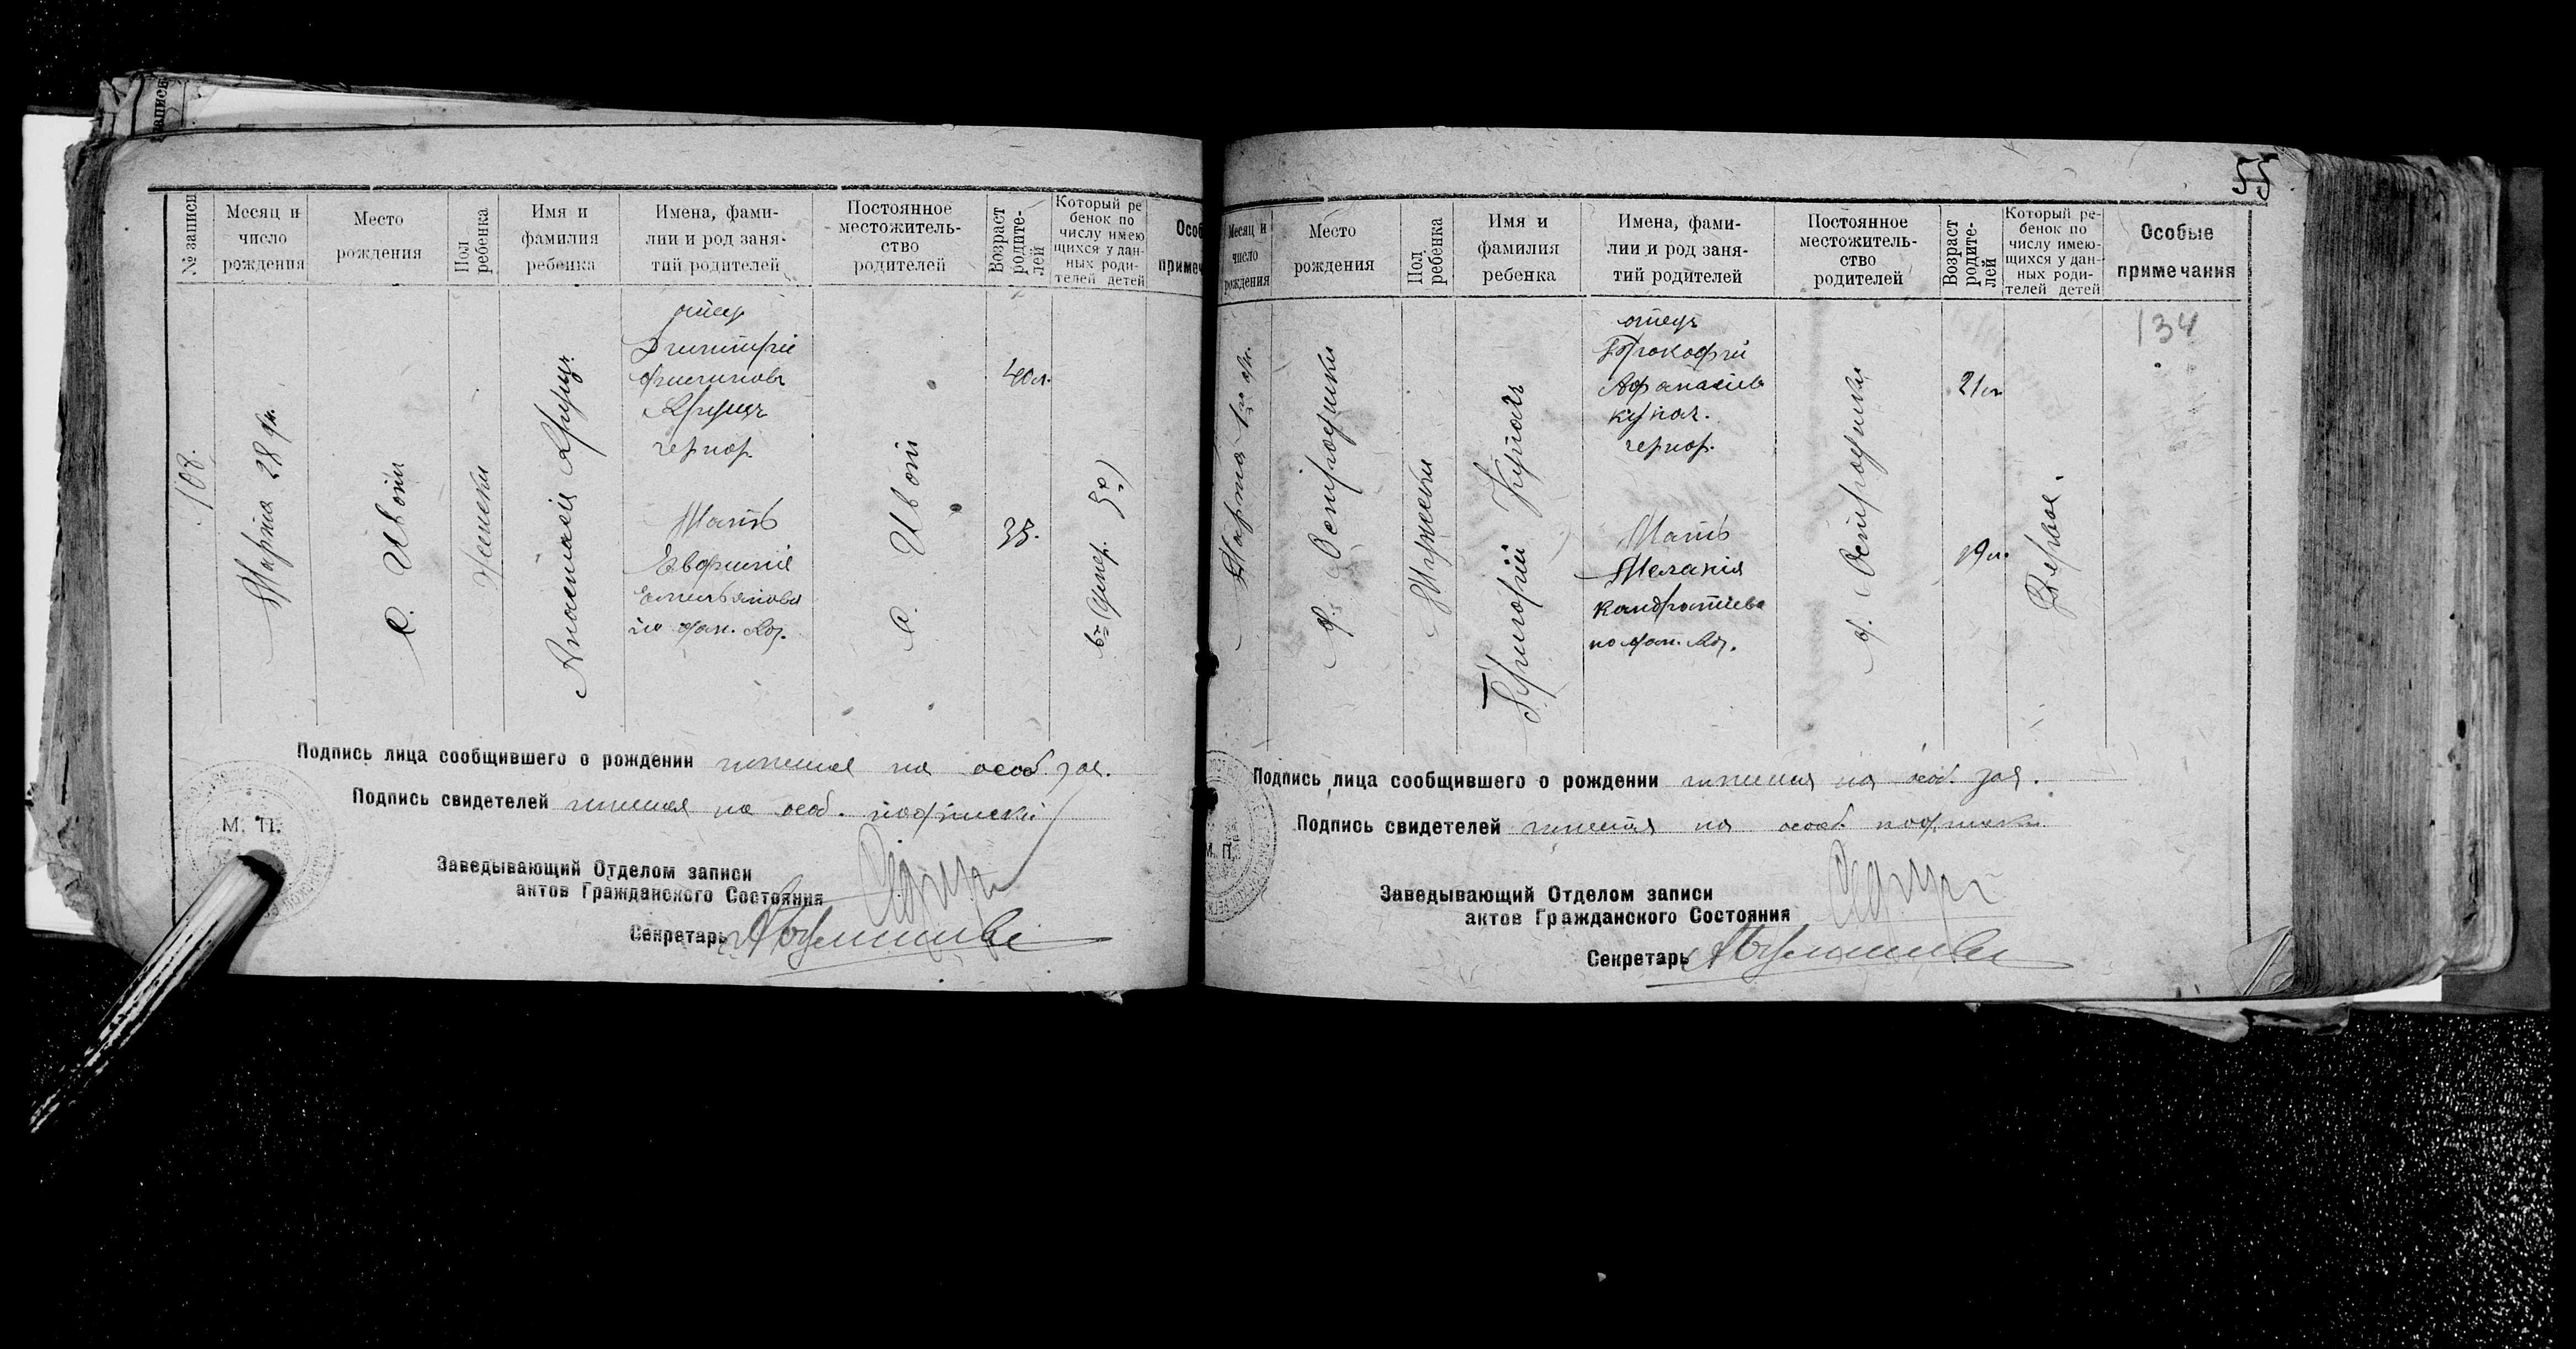 № записи
Месяц и
число
рождения
Место
рождения
Пол
ребенка
Имя и
фамилия
ребенка
Имена, фами-
лии и род заня-
тий родителей
Постоянное
местожитель-
ство
родителей
Возраст
родите-
лей
Который ре
бенок по
числу имею
щихся у дан-
ных роди-
телей детей
Особ
примеч
108.
Марта 28 дн.
с. Ивот
Женски
Анастасия
отец
Димитрие
черпор.
Мать
Евфимия
Емельянова
по фам.
с. Ивот
40 л.
38.
6й
Подпись лица сообщившего о рождении имеется на особ. зая.
Подпись свидетелей имеется на особ. подписки
М. П.
Заведывающий Отделом записи
актов Гражданского Состояния
Секретарь
55
Месяц и
число
рождения
Место
рождения
Пол
ребенка
Имя и
фамилия
ребенка
Имена, фами-
лии и род заня-
тий родителей
Постоянное
местожитель-
ство
родителей
Возраст
родите-
лей
Который ре-
бенок по
числу имею-
щихся у дан-
ных роди-
телей детей
Особые
примечания
134
Марта 1го дн.
Мужески
Григорий
отец
Прокофий
Афанасиев
черпор.
Мать
Мелания
Кандратиева
по фам.
21 л.
19 л.
Первое.
Подпись лица сообщившего о рождении имеется на особ. зая.
Подпись свидетелей имеется на особ. подписки
М. П.
Заведывающий Отделом записи
актов Гражданского Состояния
Секретарь